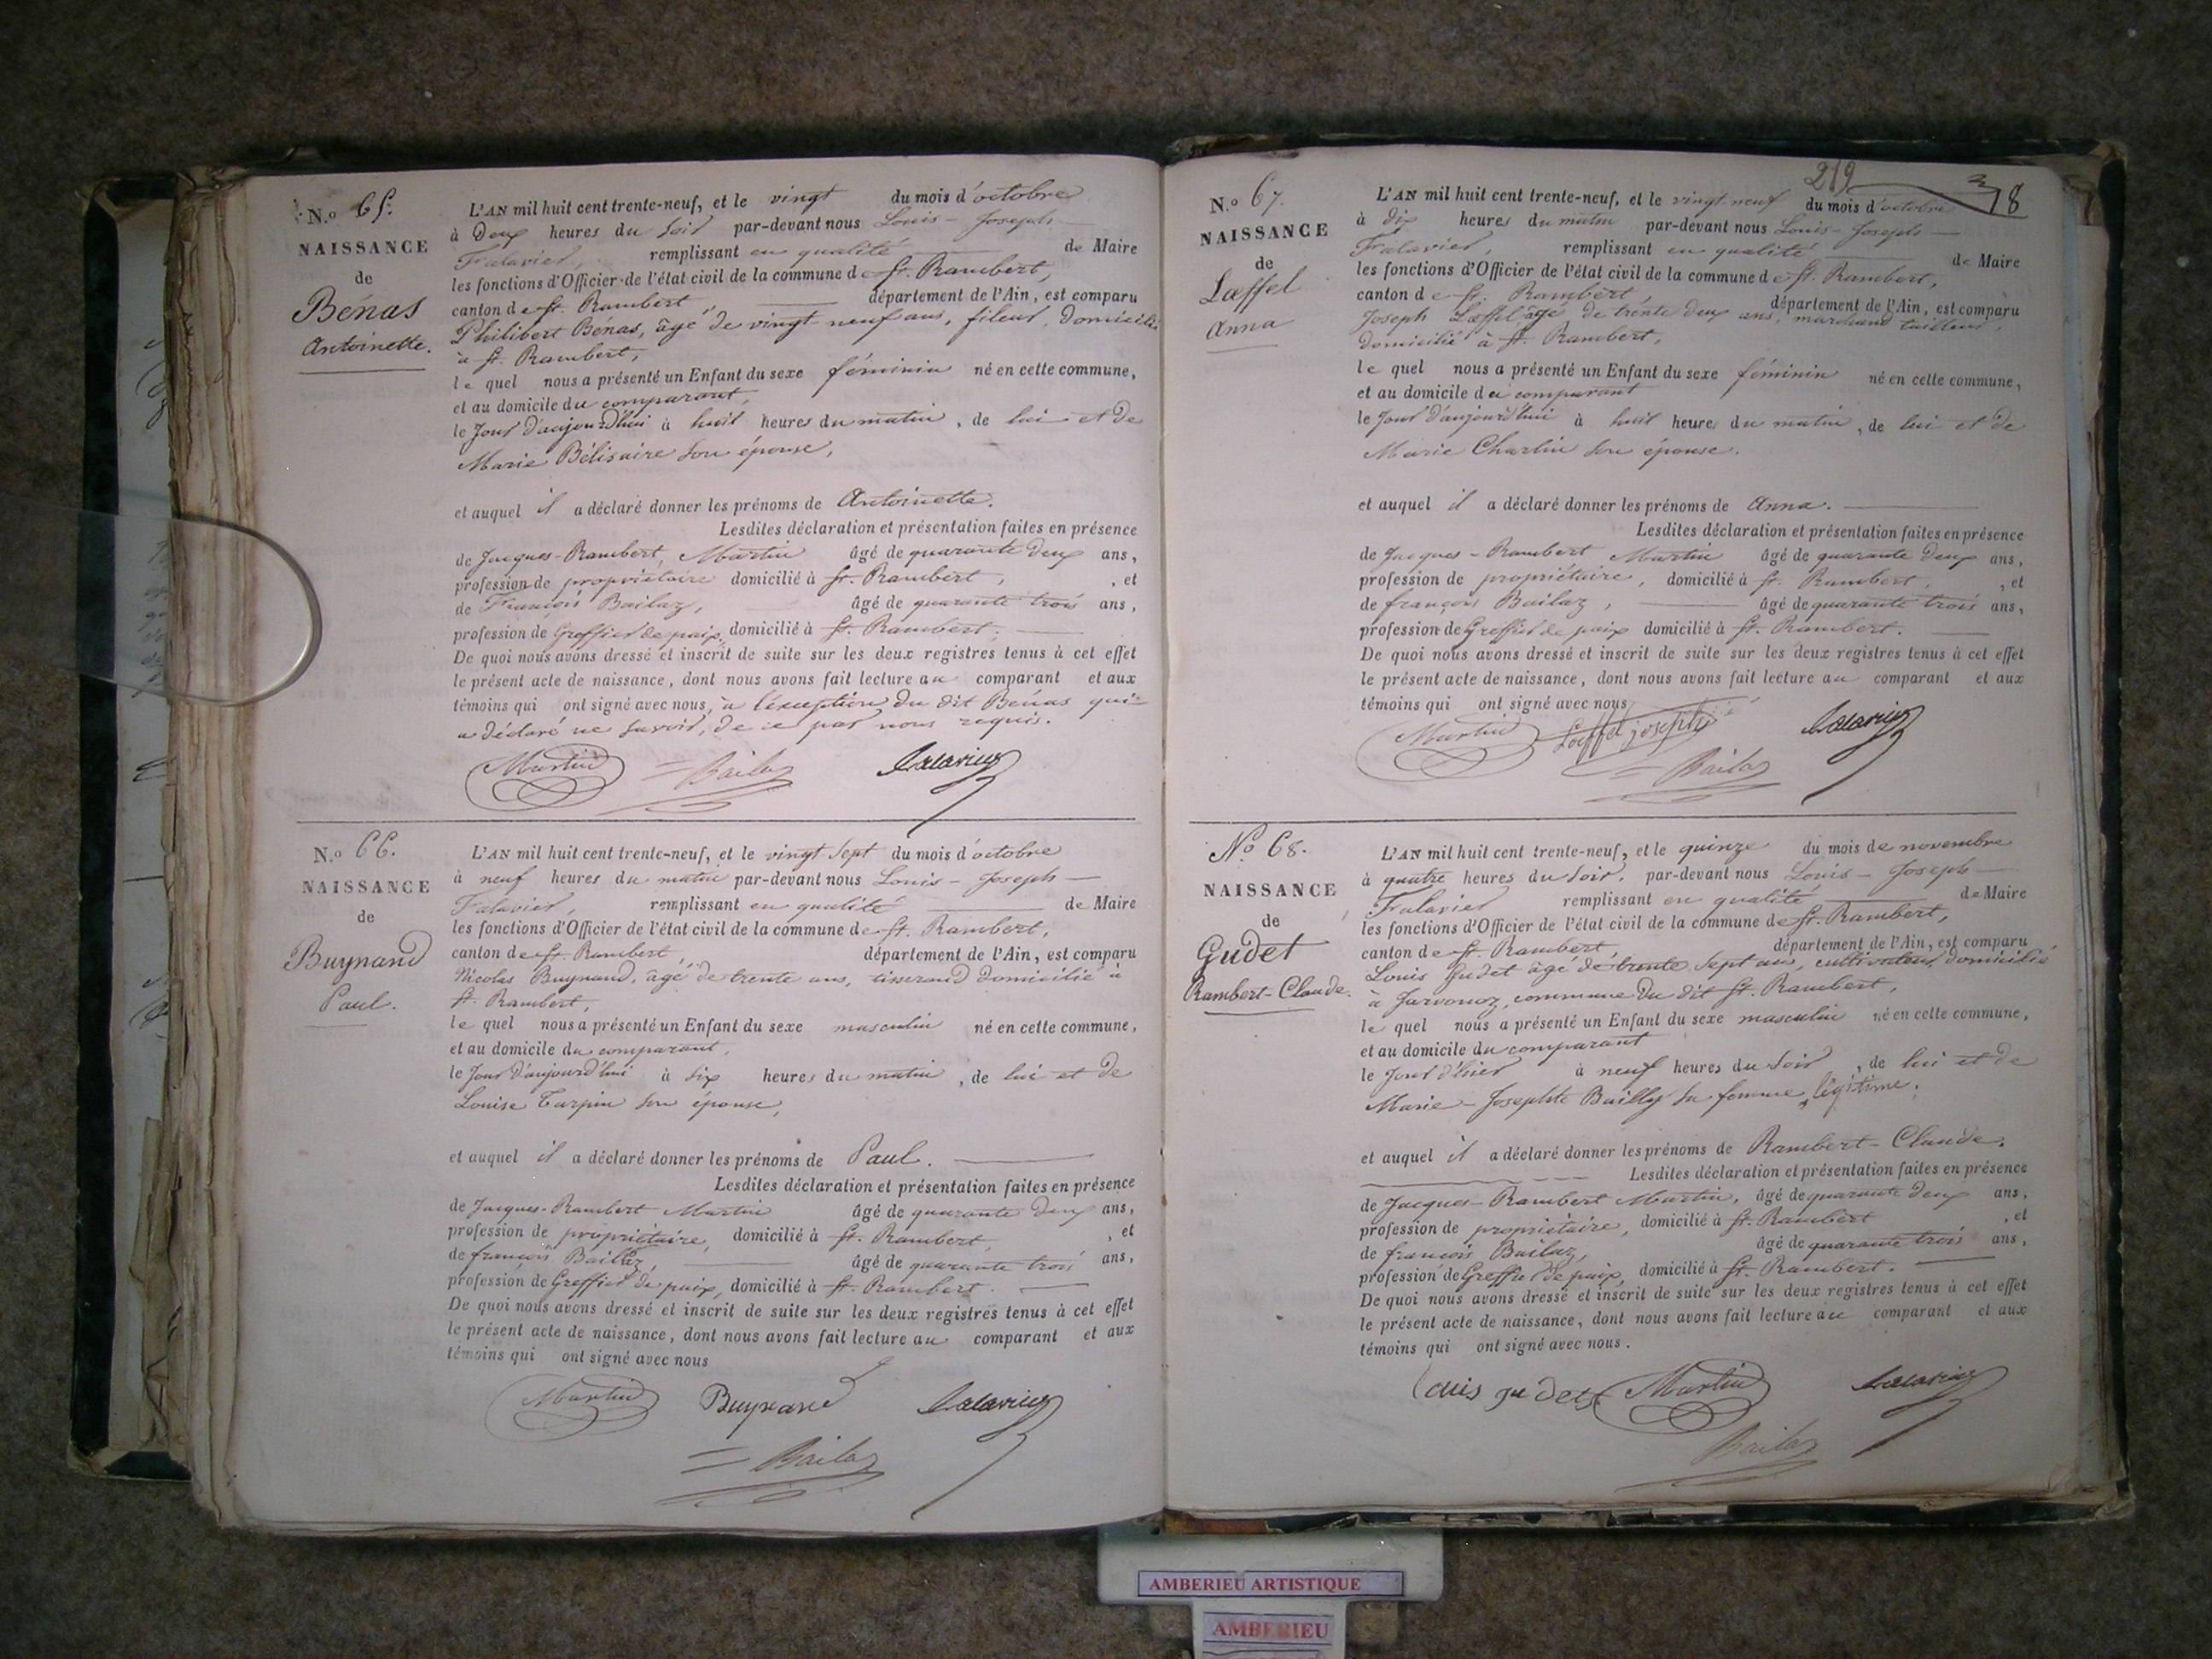 N.o 65.
NAISSANCE
de
Bénas
Antoinette.
L'AN mil huit cent trente-neuf, et le vingt du mois d'octobre
à Deux heures du soir par-devant nous Louis-Joseph
Falavier, remplissant en qualité de Maire
les fonctions d'Officier de l'état civil de la commune de St. Rambert,
canton de St. Rambert, département de l'Ain, est comparu
Philibert Bénas, âgé de vingt-neuf ans, fileur, domicilié
à St. Rambert,
le quel nous a présenté un Enfant du sexe féminin né en cette commune,
et au domicile du comparant,
le Jour d'aujourd'hui à huit heures du matin, de lui et de
Marie Bélisaire son épouse,
et auquel il a déclaré donner les prénoms de Antoinette.
Lesdites déclaration et présentation faites en présence
de Jacques-Rambert Martin âgé de quarante deux ans,
profession de propriétaire domicilié à St. Rambert, , et
de François Bailaz, âgé de quarante trois ans,
profession de Greffier de paix, domicilié à St. Rambert.
De quoi nous avons dressé et inscrit de suite sur les deux registres tenus à cet effet
le présent acte de naissance, dont nous avons fait lecture au comparant et aux
témoins qui ont signé avec nous, à l'exception du dit Bénas qui
a déclaré ne savoir, de ce par nous requis.
Martin Bailaz Falavier
N.o 66.
NAISSANCE
de
Buynand
Paul.
L'AN mil huit cent trente-neuf, et le vingt sept du mois d'octobre
à neuf heures du matin par-devant nous Louis-Joseph
Falavier, remplissant en qualité de Maire
les fonctions d'Officier de l'état civil de la commune de St. Rambert,
canton de St. Rambert, département de l'Ain, est comparu
Nicolas Buynand, âgé de trente ans, tisserand domicilié à
St. Rambert,
le quel nous a présenté un Enfant du sexe masculin né en cette commune,
et au domicile du comparant,
le Jour d'aujourd'hui à six heures du matin, de lui et de
Louise Turpin son épouse,
et auquel il a déclaré donner les prénoms de Paul.
Lesdites déclaration et présentation faites en présence
de Jacques-Rambert Martin âgé de quarante deux ans,
profession de propriétaire, domicilié à St. Rambert, , et
de françois Bailaz, âgé de quarante trois ans,
profession de Greffier de paix, domicilié à St. Rambert.
De quoi nous avons dressé et inscrit de suite sur les deux registres tenus à cet effet
le présent acte de naissance, dont nous avons fait lecture au comparant et aux
témoins qui ont signé avec nous
Martin Buynand Falavier
Bailaz
219
78
N.o 67.
NAISSANCE
de
Lœffel
Anna
L'AN mil huit cent trente-neuf, et le vingt-neuf du mois d'octobre
à dix heures du matin par-devant nous Louis-Joseph
Falavier, remplissant en qualité de Maire
les fonctions d'Officier de l'état civil de la commune de St. Rambert,
canton de St. Rambert, département de l'Ain, est comparu
Joseph Lœffel âgé de trente deux ans, marchand tailleur,
domicilié à St. Rambert,
le quel nous a présenté un Enfant du sexe féminin né en cette commune,
et au domicile du comparant
le Jour d'aujourd'hui à huit heures du matin, de lui et de
Marie Charlin son épouse.
et auquel il a déclaré donner les prénoms de Anna.
Lesdites déclaration et présentation faites en présence
de Jacques-Rambert Martin âgé de quarante deux ans,
profession de propriétaire, domicilié à St. Rambert, , et
de françois Bailaz, âgé de quarante trois ans,
profession de Greffier de paix domicilié à St. Rambert.
De quoi nous avons dressé et inscrit de suite sur les deux registres tenus à cet effet
le présent acte de naissance, dont nous avons fait lecture au comparant et aux
témoins qui ont signé avec nous
Martin Loeffel joseph Falavier
Bailaz
No 68.
NAISSANCE
de
Gudet
Rambert-Claude.
L'AN mil huit cent trente-neuf, et le quinze du mois de novembre
à quatre heures du soir, par-devant nous Louis-Joseph
Falavier remplissant en qualité de Maire
les fonctions d'Officier de l'état civil de la commune de St. Rambert,
canton de St. Rambert, département de l'Ain, est comparu
Louis Gudet âgé de trente sept ans, cultivateur domicilié
à Javornoz, commune du dit St. Rambert,
le quel nous a présenté un Enfant du sexe masculin né en cette commune,
et au domicile du comparant
le Jour d'hier à neuf heures du soir, de lui et de
Marie-Josephte Bailly sa femme légitime,
et auquel il a déclaré donner les prénoms de Rambert-Claude.
Lesdites déclaration et présentation faites en présence
de Jacques-Rambert Martin, âgé de quarante deux ans,
profession de propriétaire, domicilié à St. Rambert , et
de françois Bailaz, âgé de quarante trois ans,
profession de Greffier de paix, domicilié à St. Rambert.
De quoi nous avons dressé et inscrit de suite sur les deux registres tenus à cet effet
le présent acte de naissance, dont nous avons fait lecture au comparant et aux
témoins qui ont signé avec nous.
Louis gudet Martin Falavier
Bailaz
AMBERIEU ARTISTIQUE
AMBERIEU